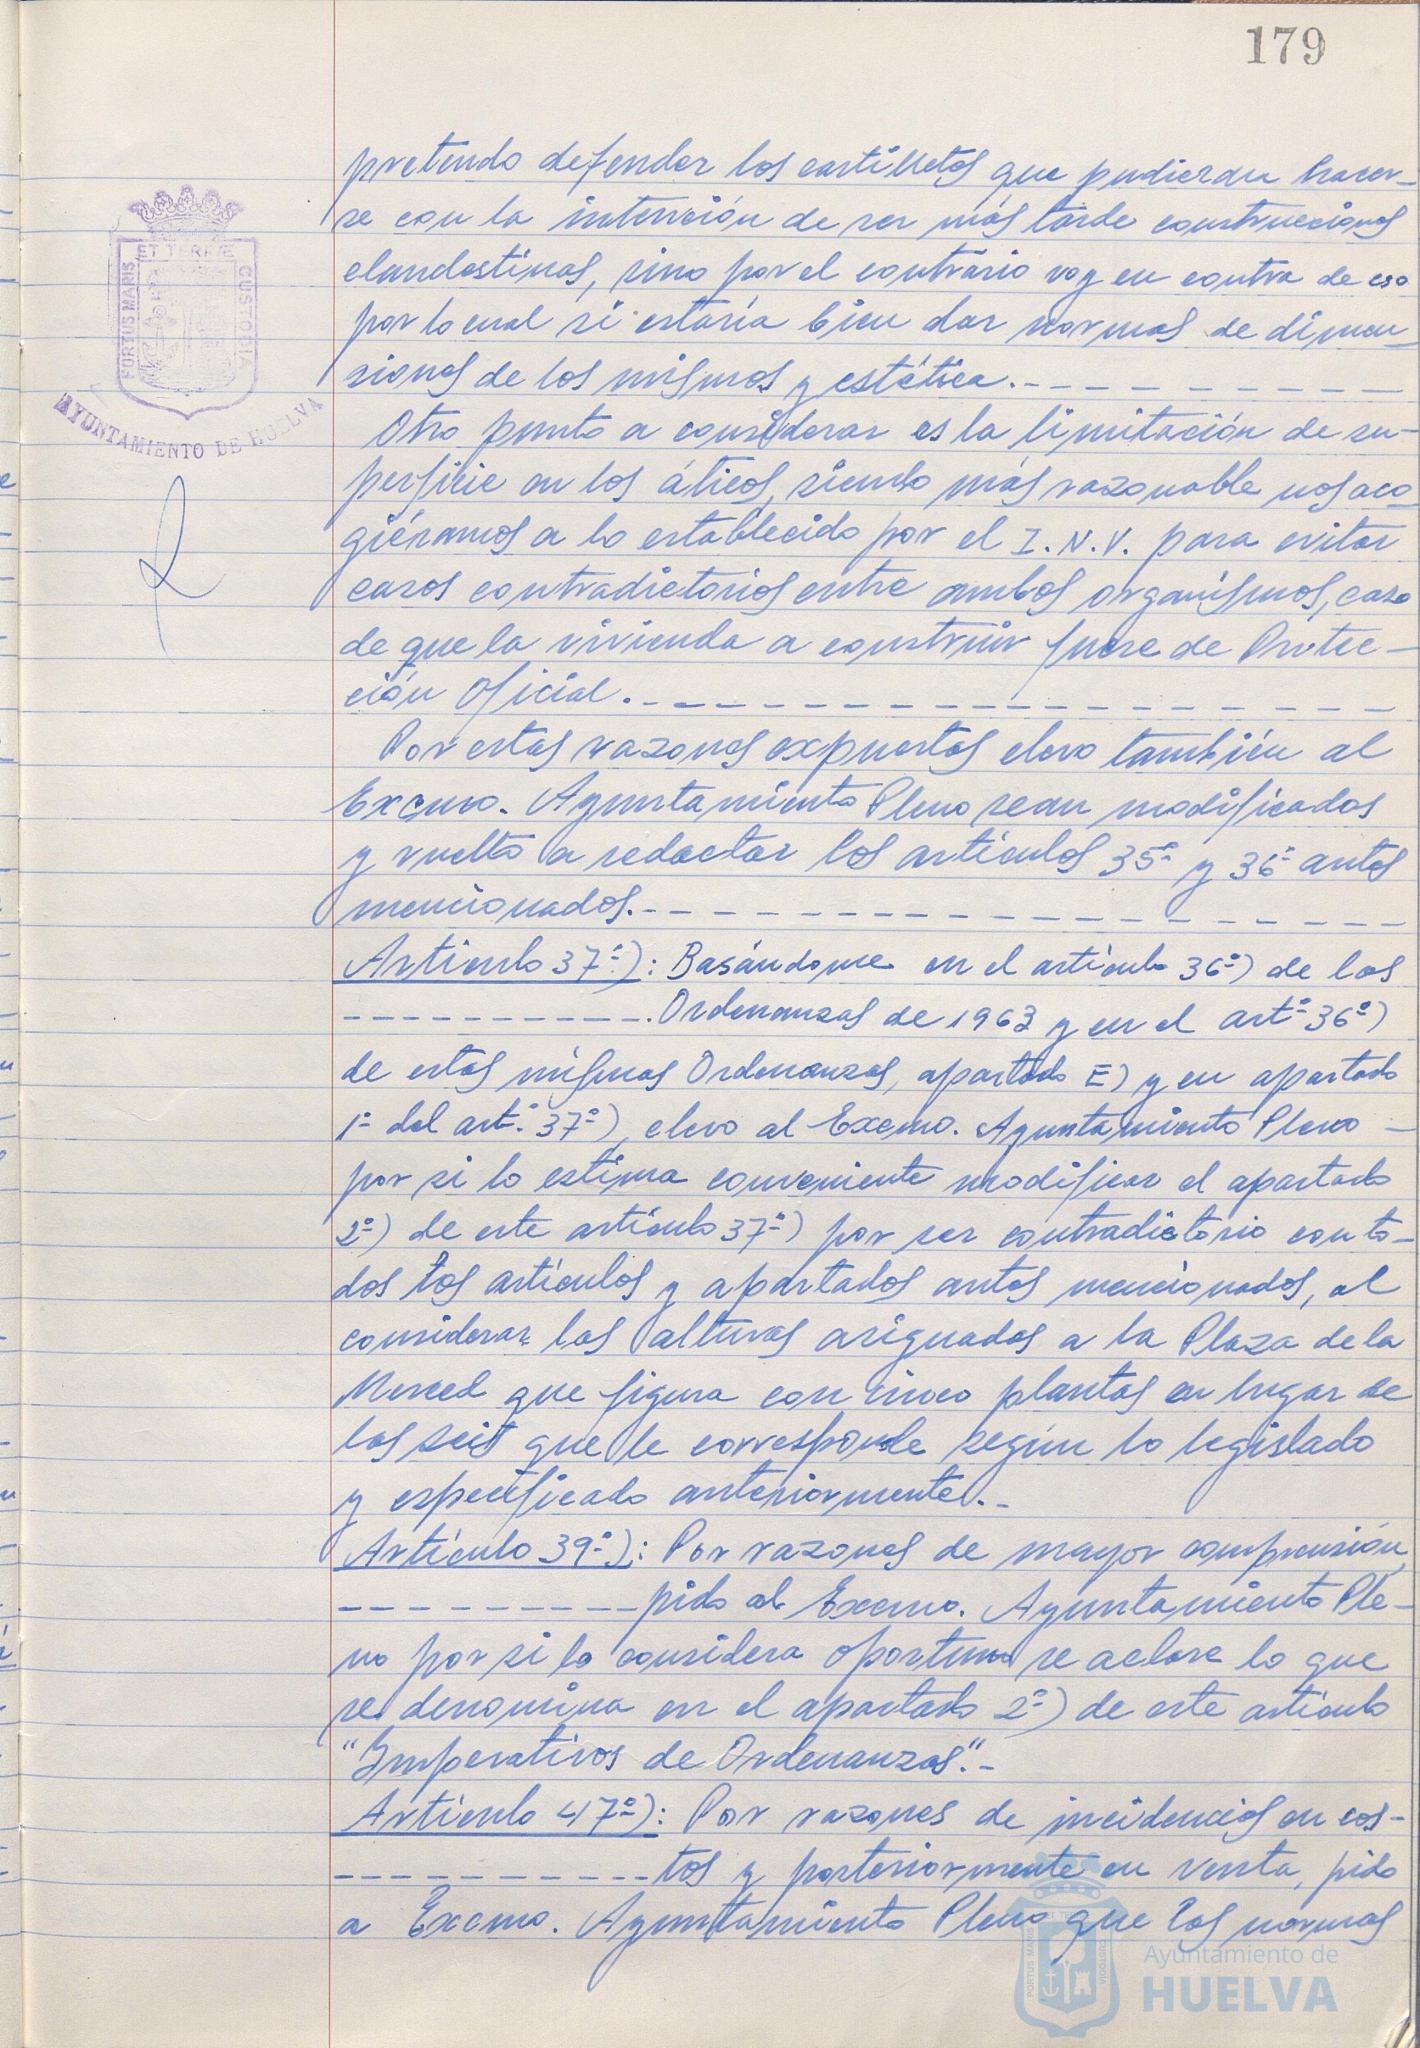 179
pretendo defender los castilletes que pudieran hacer-
se con la intención de ser más tarde construcciones
clandestinas, sino por el contrario voy en contra de eso
por lo cual si estaría bien dar normas de dimen-
siones de los mismos y estética.-
Otro punto a considerar es la limitación de su-
perficie en los áticos, siendo más razonable nos aco-
giéramos a lo establecido por el I.N.V. para evitar
casos contradictorios entre ambos organismos, caso
de que la vivienda a construir fuese de Protec-
ción Oficial.-
Por estas razones expuestas elevo también al
Excmo. Ayuntamiento Pleno sean modificados
y vuelto a redactar los artículos 35º y 36º antes
mencionados.-
Artículo 37º): Basándome en el artículo 36º) de las
Ordenanzas de 1963 y en el artº 36º)
de estas mismas Ordenanzas, apartado E) y en apartado
1º del artº. 37º), elevo al Excmo. Ayuntamiento Pleno -
por si lo estima conveniente modificar el apartado
2º) de este artículo 37º) por ser contradictorio con to-
dos los artículos y apartados antes mencionados, al
considerar las alturas asignadas a la Plaza de la
Merced que figura con cinco plantas en lugar de
las seis que le corresponde según lo legislado
y especificado anteriormente.-
Artículo 39º): Por razones de mayor comprensión,
pido al Excmo. Ayuntamiento Ple-
no por si lo considera oportuno se aclare lo que
se denomina en el apartado 2º) de este artículo
"Imperativos de Ordenanzas".-
Artículo 47º): Por razones de incidencias en cos-
tos y posteriormente en venta, pido
a Excmo. Ayuntamiento Pleno que las normas
PORTUS MARIS ET TERRÆ CUSTODIA
AYUNTAMIENTO DE HUELVA
Ayuntamiento de
HUELVA